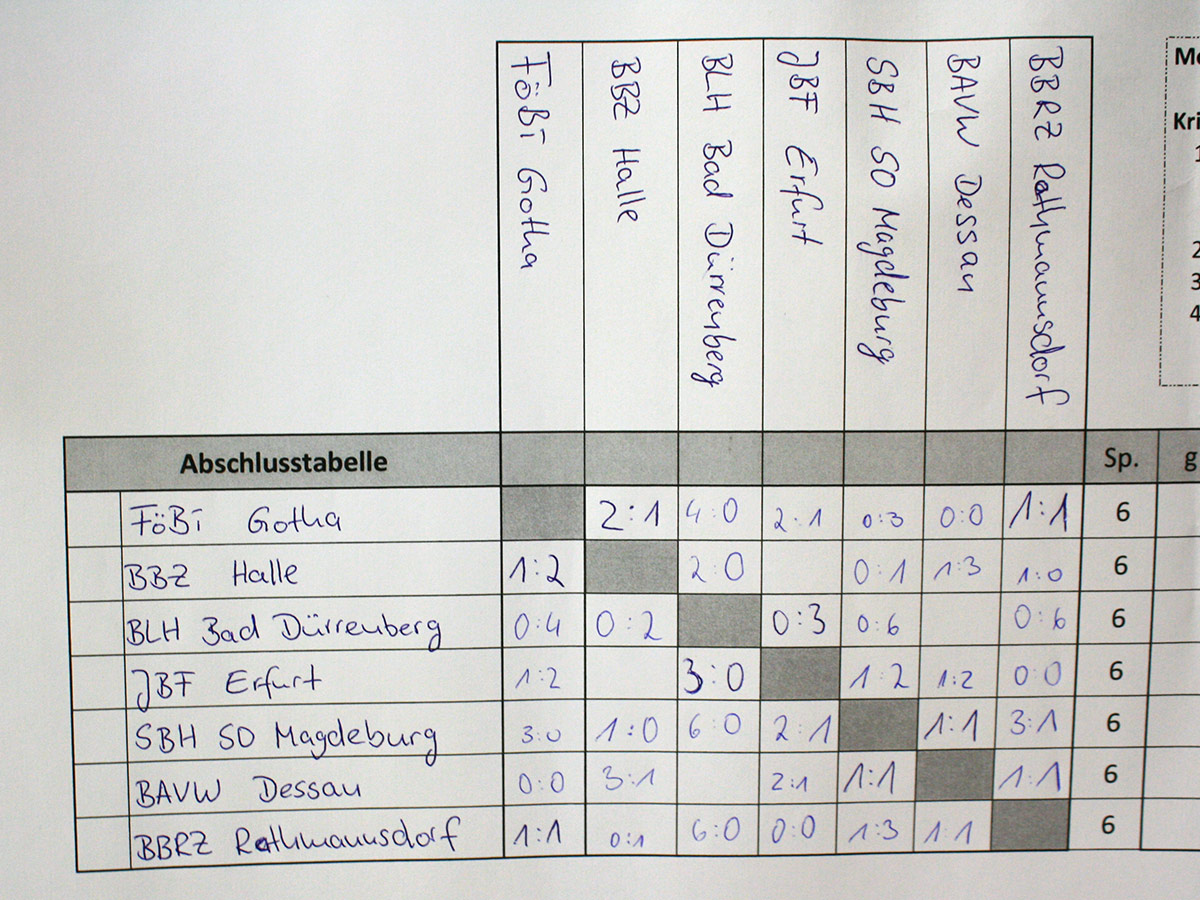 FöBi Gotha
BBZ Halle
BLH Bad Dürrenberg
JBF Erfurt
SBH SO Magdeburg
BAVW Dessau
BBRZ Rathmannsdorf
Kri
1
2
3
4
Abschlusstabelle Sp. g
FöBi Gotha 2:1 4:0 2:1 0:3 0:0 1:1 6
BBZ Halle 1:2 2:0 0:1 1:3 1:0 6
BLH Bad Dürrenberg 0:4 0:2 0:3 0:6 0:6 6
JBF Erfurt 1:2 3:0 1:2 1:2 0:0 6
SBH SO Magdeburg 3:0 1:0 6:0 2:1 1:1 3:1 6
BAVW Dessau 0:0 3:1 2:1 1:1 1:1 6
BBRZ Rathmannsdorf 1:1 0:1 6:0 0:0 1:3 1:1 6